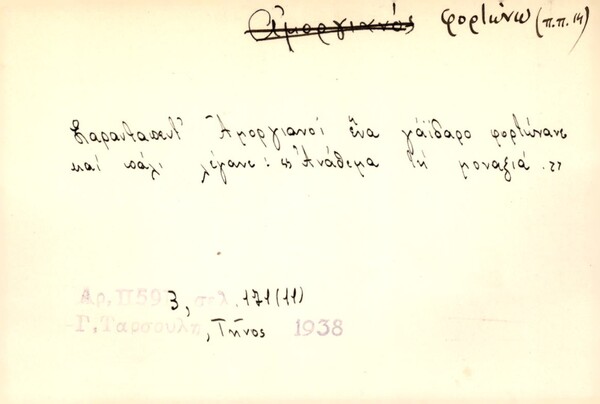 Ἀμοργιανός φορτώνω (π.π. 14)
Σαρανταπέντ' Ἀμοργιανοί ἕνα γάϊδαρο φορτώνανε
καί πάλι λέγανε: «Ἀνάθεμα τή μοναξιά.»
Αρ. Π 593, σελ. 171 (11)
Γ. Ταρσούλη, Τῆνος 1938